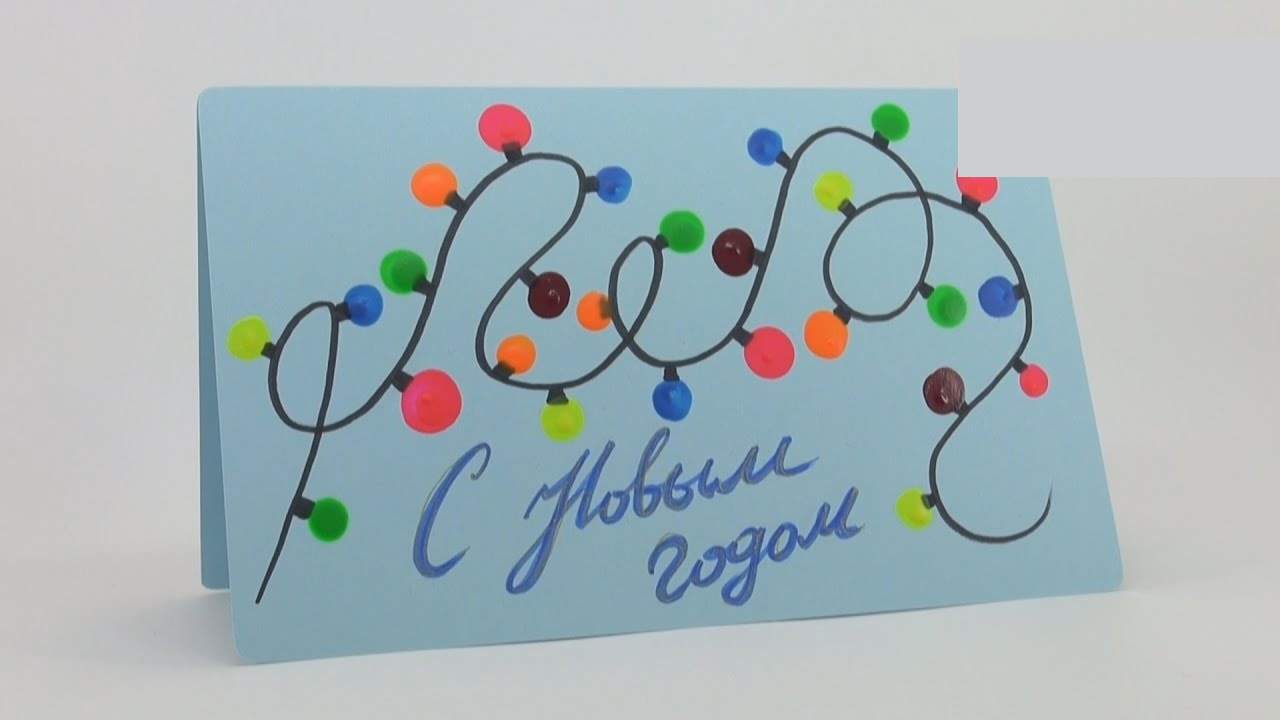 С Новым
годом